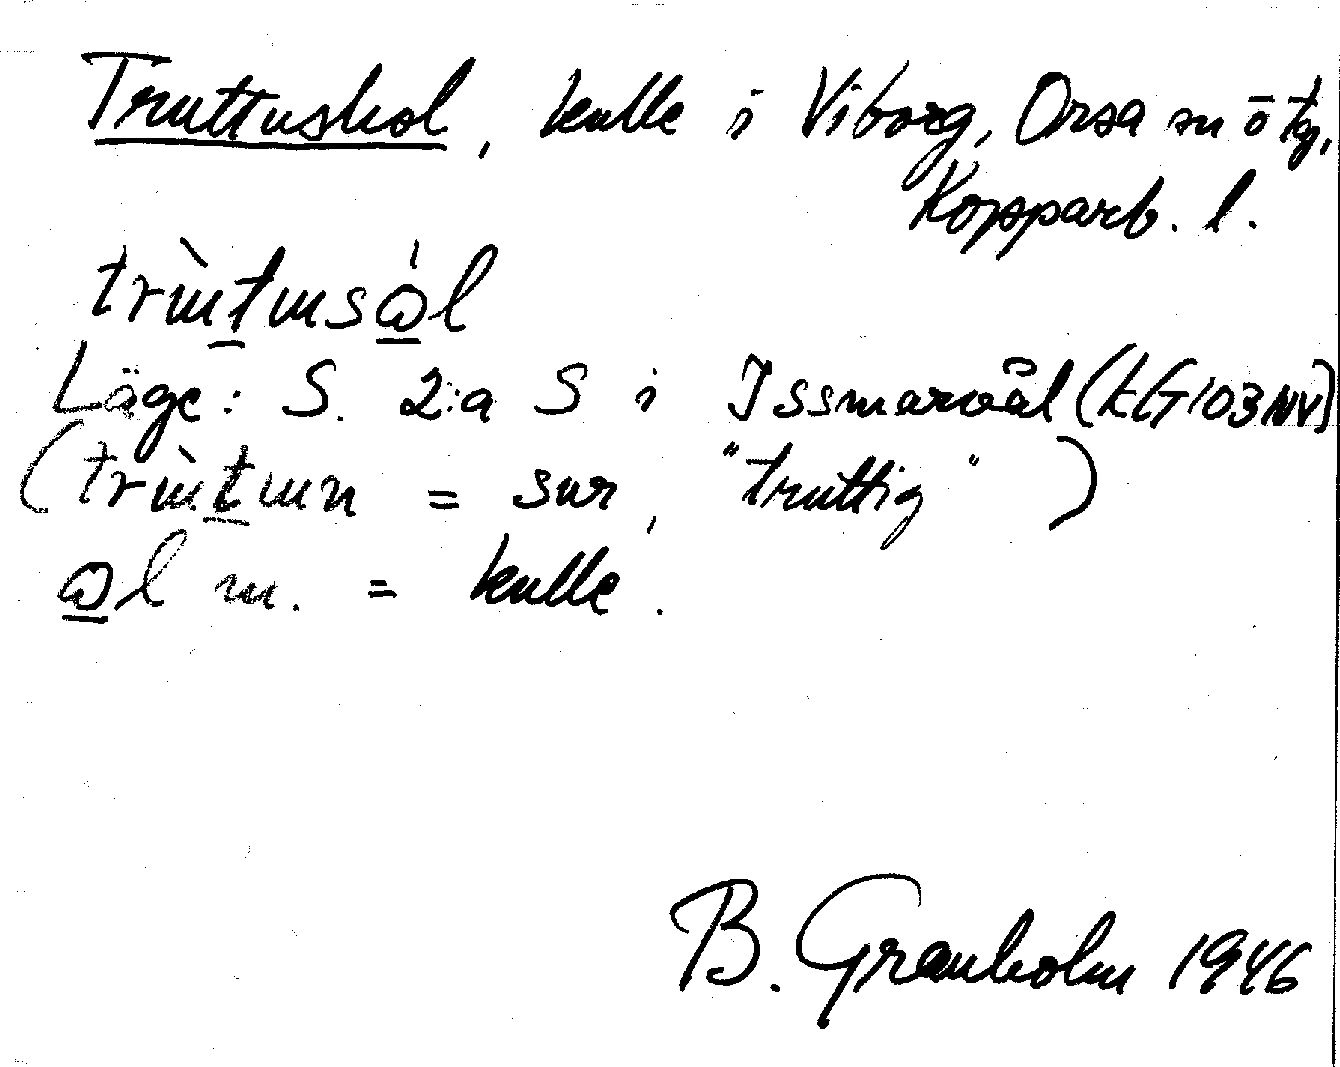 Truttushol, kulle i Viborg, Orsa sn ö tg,
Kopparb. l.
trɯ̀tɯsɷ̀l
Läge: S. 2:a S i Issmarvål (kG103NV)
(trɯ̀tɯn = sur, "truttig")
ɷl m. = kulle.
B. Granholm 1946